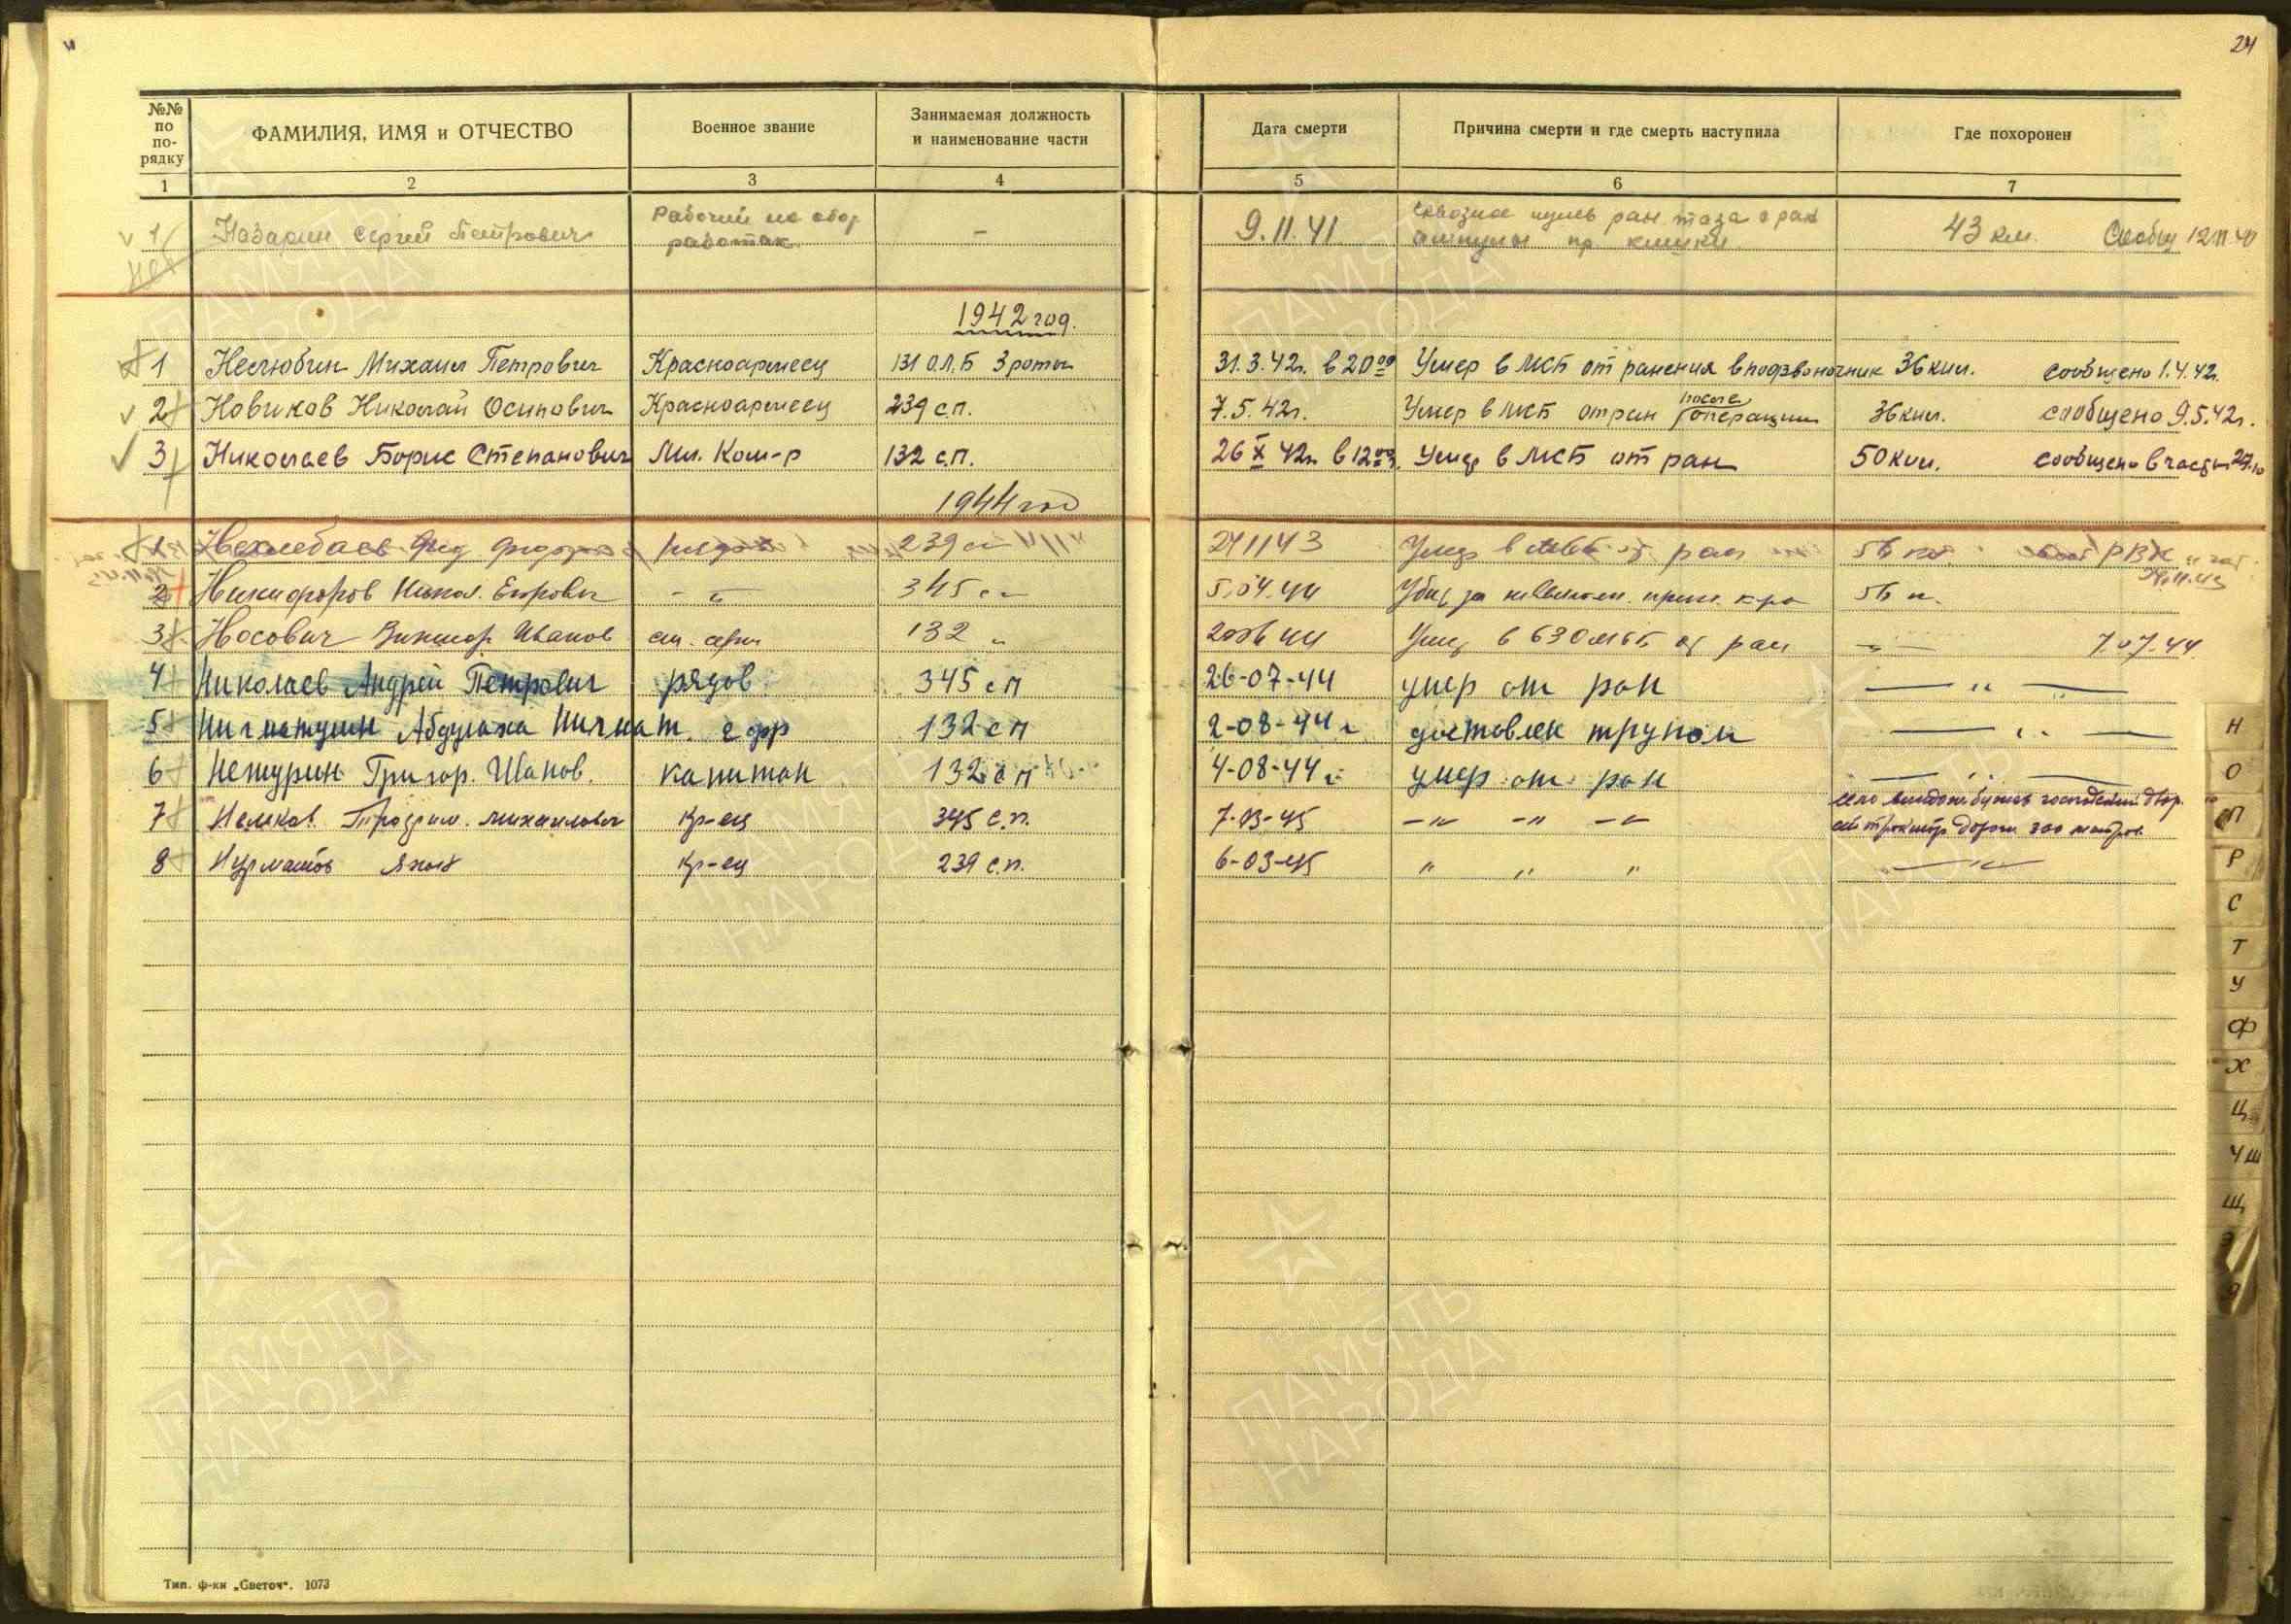 24
№№ по по-рядку
ФАМИЛИЯ, ИМЯ и ОТЧЕСТВО
Военное звание
Занимаемая должность и наименование части
Дата смерти
Причина смерти и где смерть наступила
Где похоронен
1 2 3 4 5 6 7
1 Назарин Сергей Петрович Рабочий на обор работах – 9.11.41 Сквозное пулев ран таза с ран 43 км.
1942 год.
1 Неслюбин Михаил Петрович Красноармеец 131 О.Л.Б 3 роты 31.3.42г. в 20 00 Умер в МСБ от ранения в позвоночник 36 км. сообщено 1.4.42г.
2 Новиков Николай Осипович Красноармеец 239 с.п. 7.5.42г. Умер в МСБ от ран после операции 36 км. сообщено 9.5.42г.
3 Николаев Борис Степанович Мл. Ком-р 132 с.п. 26 X 42г. в 12 00 Умер в МСБ от ран 50 км. сообщено в часть
1944 год
1 239 Умер в ран РВК
2 Никифоров Никол. Егорович – " 345 5.04.44 Убит
3 Носович Виктор Иванов ст. серж 132 " Умер в 630 МСБ от ран 7.07.44
4 Николаев Андрей Петрович рядов 345 сп 26-07-44 умер от ран — " —
5 Нигматулин Абдулаха Нигмат. ефр 132 сп 2-08-44 г доставлен трупом — " —
6 Григор. Иванов. капитан 132 сп 4-08-44 г умер от ран — " —
7 Михайлович кр-ец 345 с.п. 7-03-45 –"– –"– –"– дороги 300 метров
8 Нурматов кр-ец 239 с.п. 6-03-45 " " " — " —
Н
О
П
Р
С
Т
У
Ф
Х
Ц
Ч Ш
Щ
Тип. ф-ки „Светоч“. 1073
ПАМЯТЬ НАРОДА